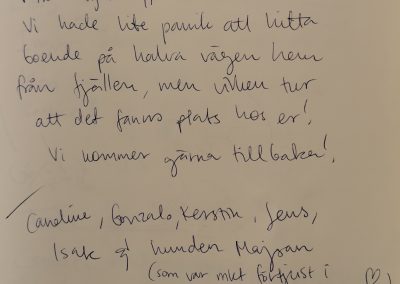 Vi hade lite panik att hitta
boende på halva vägen hem
från fjällen, men vilken tur
att det fanns plats hos er!
Vi kommer gärna tillbaka!
Caroline, Gonzalo, Kerstin, Jens,
Isak & hunden Majsan
(som var mkt förtjust i